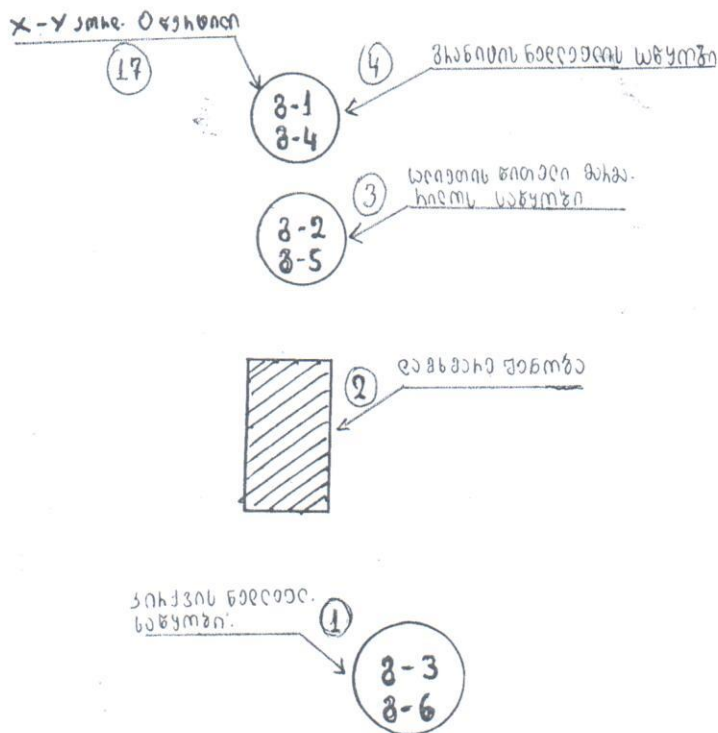 X-Y კორდ. 0 წერტილი
17
4
გრანიტის ნედლეულის საწყობი
გ-1
გ-4
3
სალიეთის წითელი მარმა-
რილოს საწყობი
გ-2
გ-5
2
დამხმარე შენობა
კირქვის ნედლეულ.
საწყობი.
1
გ-3
გ-6